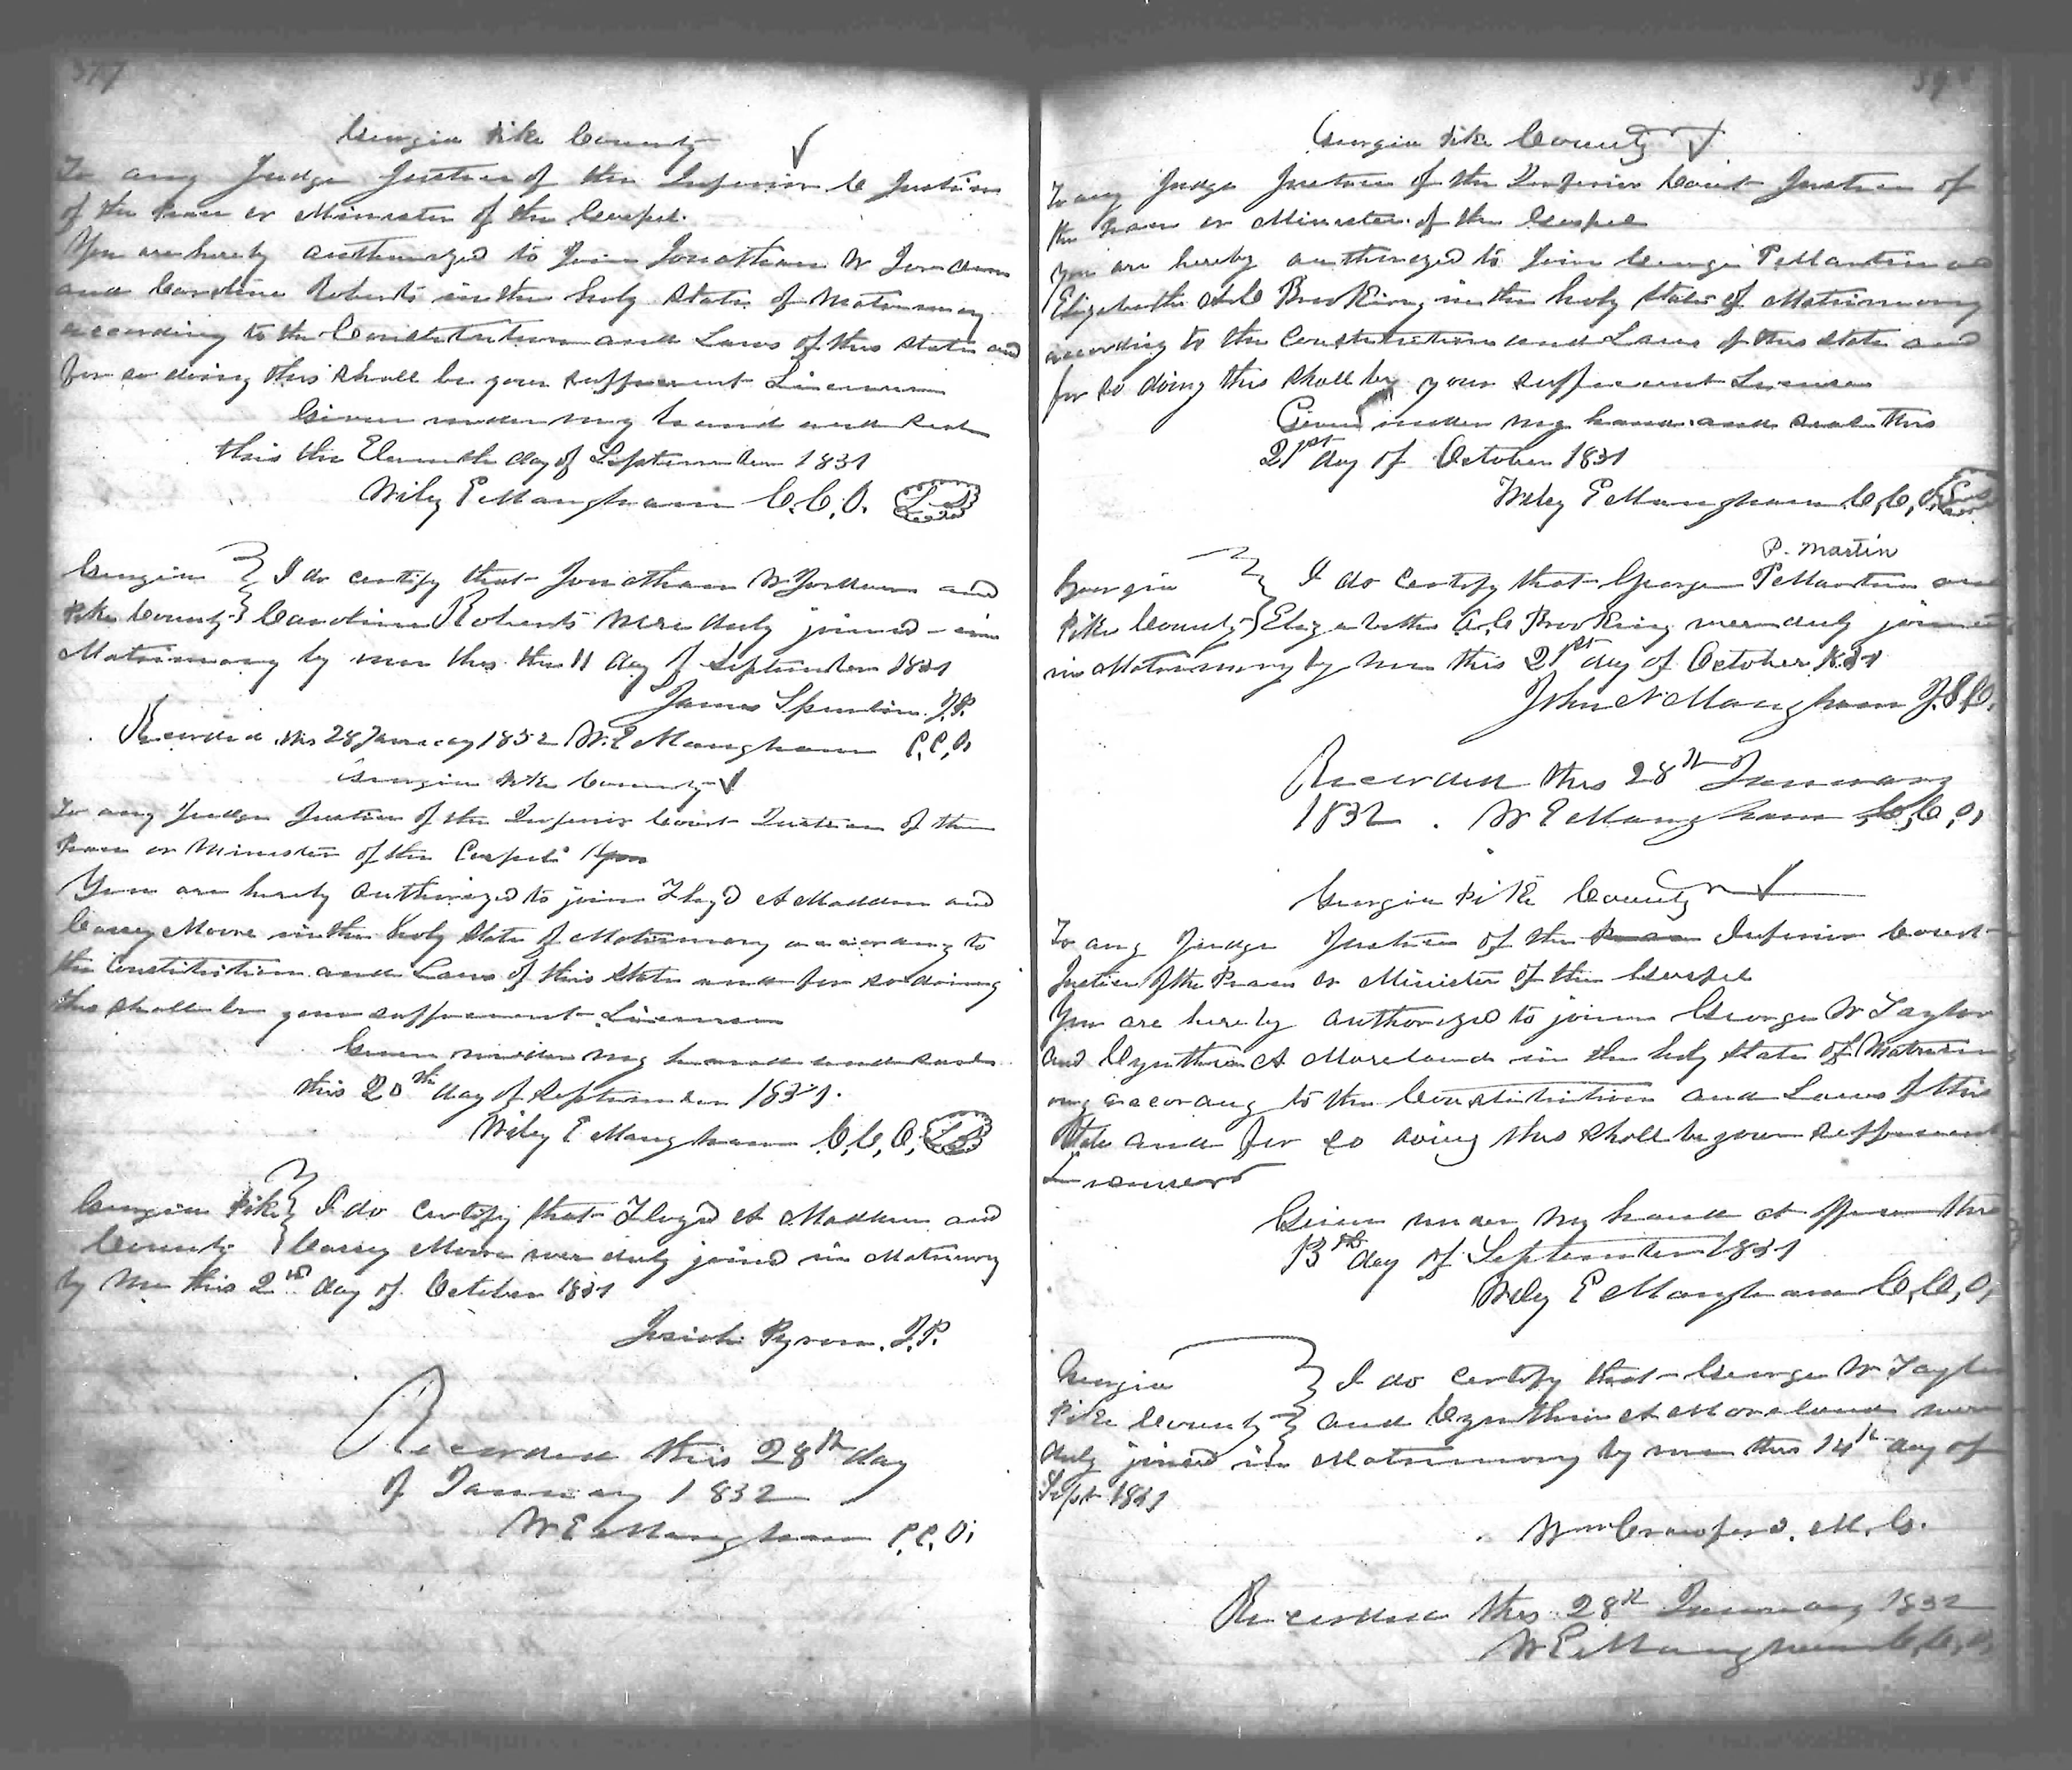 377
Georgia Pike County
To any Judge Justice of the Inferior C Justice
of the Peace or Minister of the Gospel.
You are hereby authorized to Join Jonathan W Jordan
and Caroline Roberts in the holy State of Matrimony
according to the Constitution and Laws of this State and
for so doing this shall be your sufficient License
Given under my hand and seal
this the Eleventh day of September 1831
Wiley E Mangham C.C.O. L S
Georgia } I do certify that Jonathan W Jordan and
Pike County } Caroline Roberts were duly joined in
Matrimony by me this the 11 day of September 1831
James J.P.
Recorded this 28 January 1832 W. E Mangham C.C.O.
Georgia Pike County
To any Judge Justice of the Inferior Court Justice of the
Peace or Minister of the Gospel You
You are hereby authorized to join Floyd A Madden and
Cassey Moore in the holy State of Matrimony according to
the Constitution and Laws of this State and for so doing
this shall be your sufficient License
Given under my hand and seal
this 20th day of September 1831.
Wiley E Mangham C.C.O. L S
Georgia Pike } I do certify that Floyd A Madden and
County } Cassey Moore were duly joined in Matrimony
by me this 2nd day of October 1831
Josiah Pyron. J.P.
Recorded this 28th day
of January 1832
W E Mangham C.C.O.
Georgia Pike County
To any Judge Justice of the Inferior Court Justice of
the Peace or Minister of the Gospel
You are hereby authorized to Join George P Martin and
Elizabeth A C Brooking in the holy State of Matrimony
according to the Constitution and Laws of this State and
for so doing this shall be your sufficient License
Given under my hand and seal this
21st day of October 1831
Wiley E Mangham C.C.O.
P. Martin
Georgia } I do certify that George P Martin and
Pike County } Elizabeth A. C Brooking were duly joined
in Matrimony by me this 21st day of October 1831
John N Mangham J.I.C.
Recorded this 28th of January
1832. W E Mangham C.C.O.
Georgia Pike County
To any Judge Justice of the Peace Inferior Court
Justice of the Peace or Minister of the Gospel
You are hereby authorized to join George W Taylor
and Cynthia A Moreland in the holy State of Matrim
ony accorang to the Constitution and Laws of this
State and for so doing this shall be your sufficient
Licenses
Given under my hand at office this
13th day of September 1831
Wiley E Mangham C.C.O.
Georgia } I do certify that George W Taylor
Pike County } and Cynthia A Moreland were
duly joined in Matrimony by me this 14th day of
Sept 1831
Wm Crawford. M. G.
Recorded this 28th January 1832
W E Mangham C.C.O.